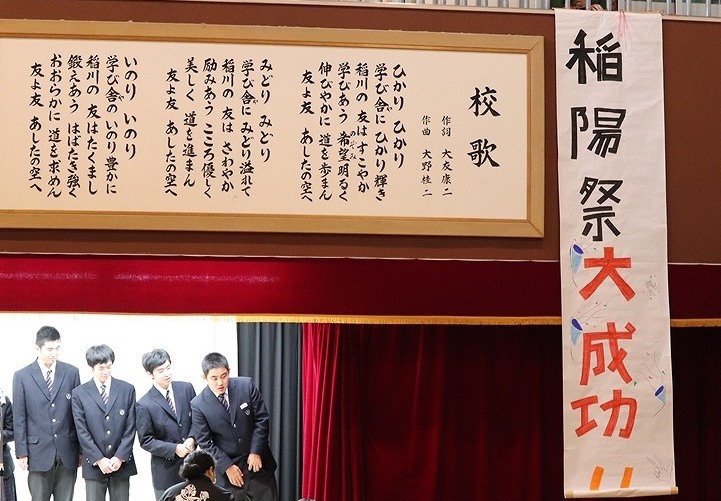 校歌
作詞 大友康二
作曲 大野桂二
ひかり ひかり
学び舎に ひかり輝き
稲川の 友はすこやか
学びあう 希望明るく
伸びやかに 道を歩まん
友よ友 あしたの空へ
みどり みどり
学び舎に みどり溢れて
稲川の 友は さわやか
励みあう こころ優しく
美しく 道を進まん
友よ友 あしたの空へ
いのり いのり
学び舎の いのり豊かに
稲川の 友はたくまし
鍛えあう はばたき強く
おおらかに 道を求めん
友よ友 あしたの空へ
稲陽祭大成功!!